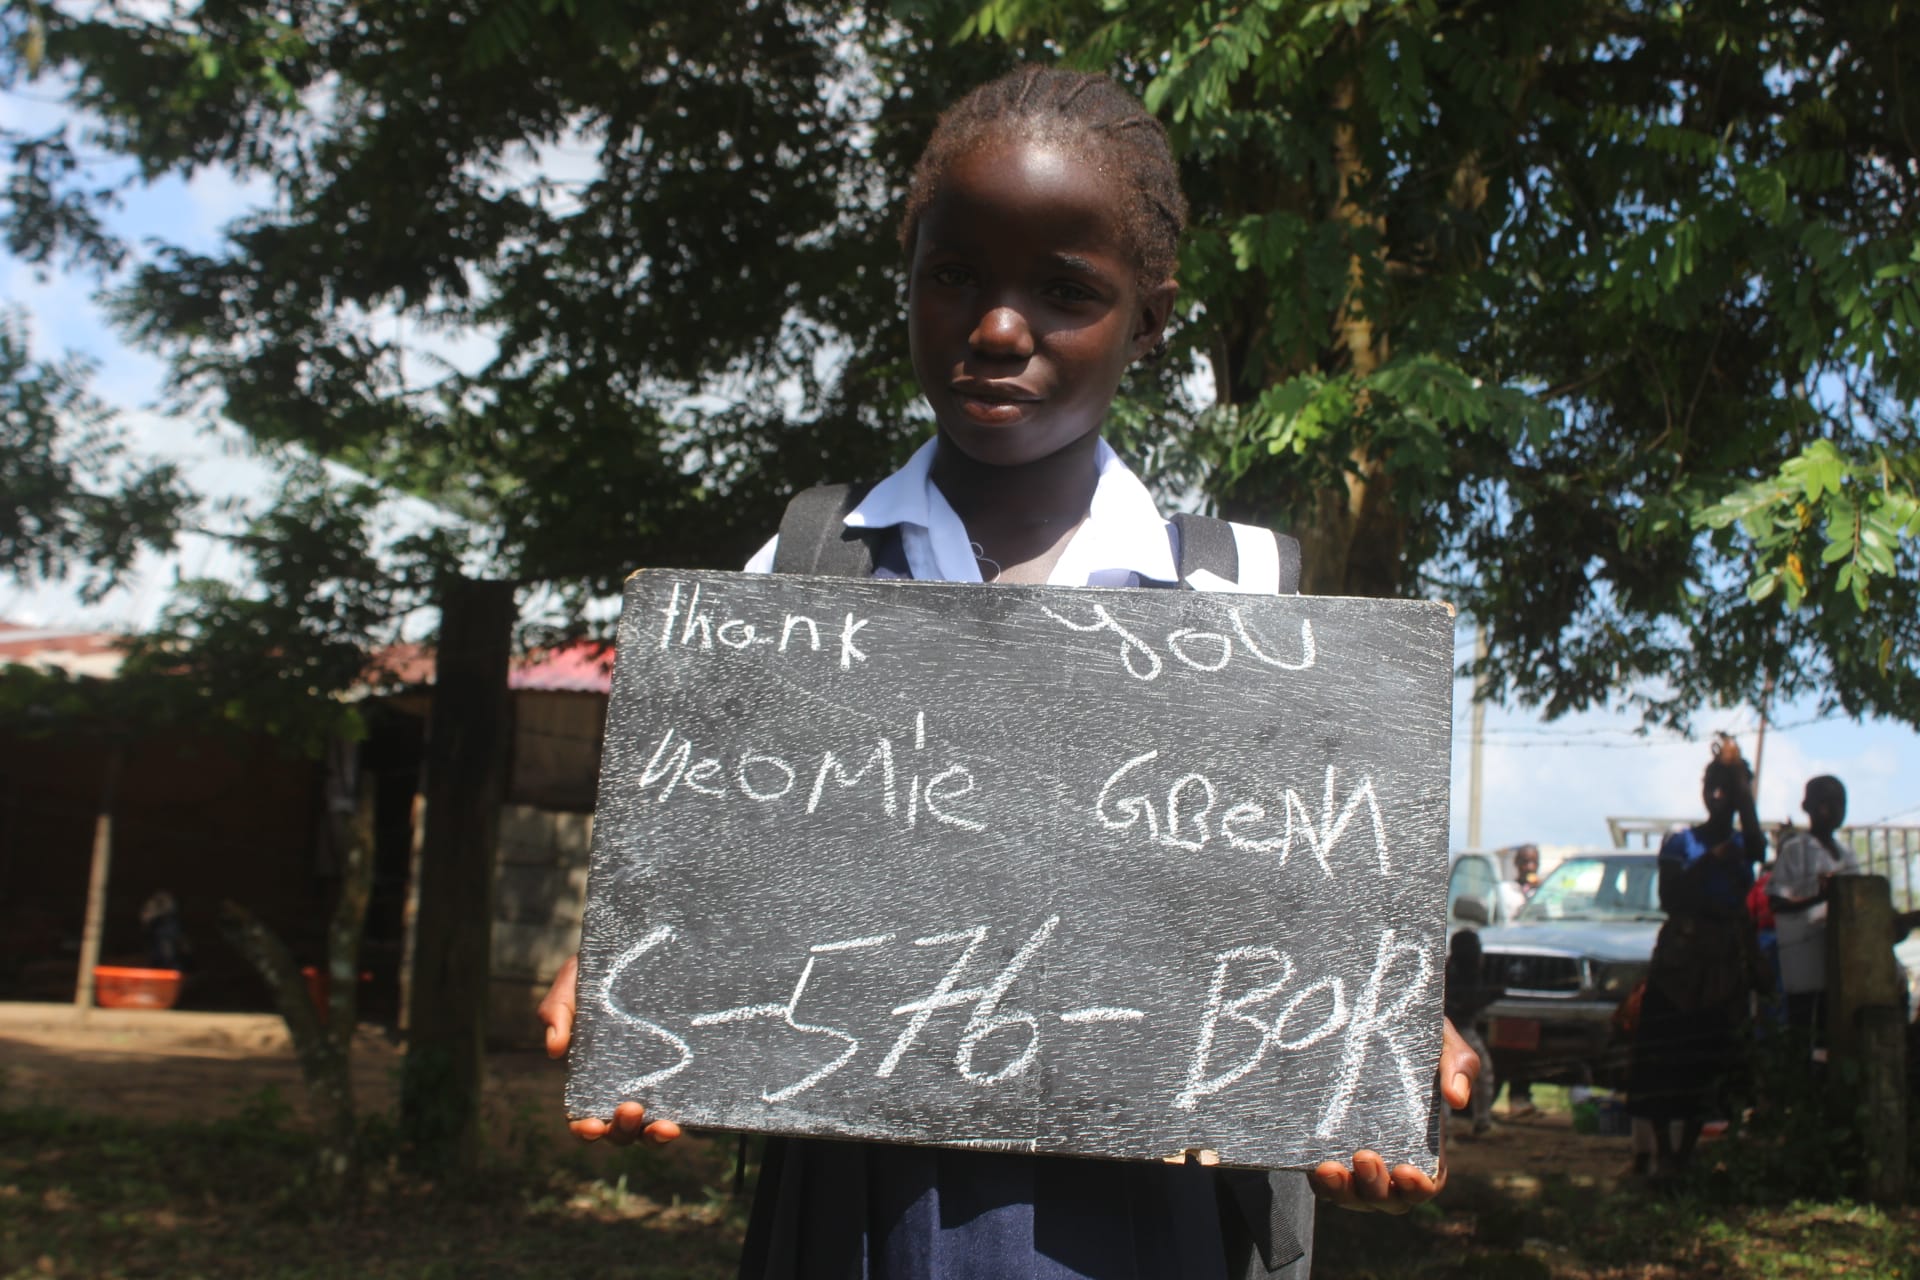 thank you
yeomie GBeAN
S-576-BOR